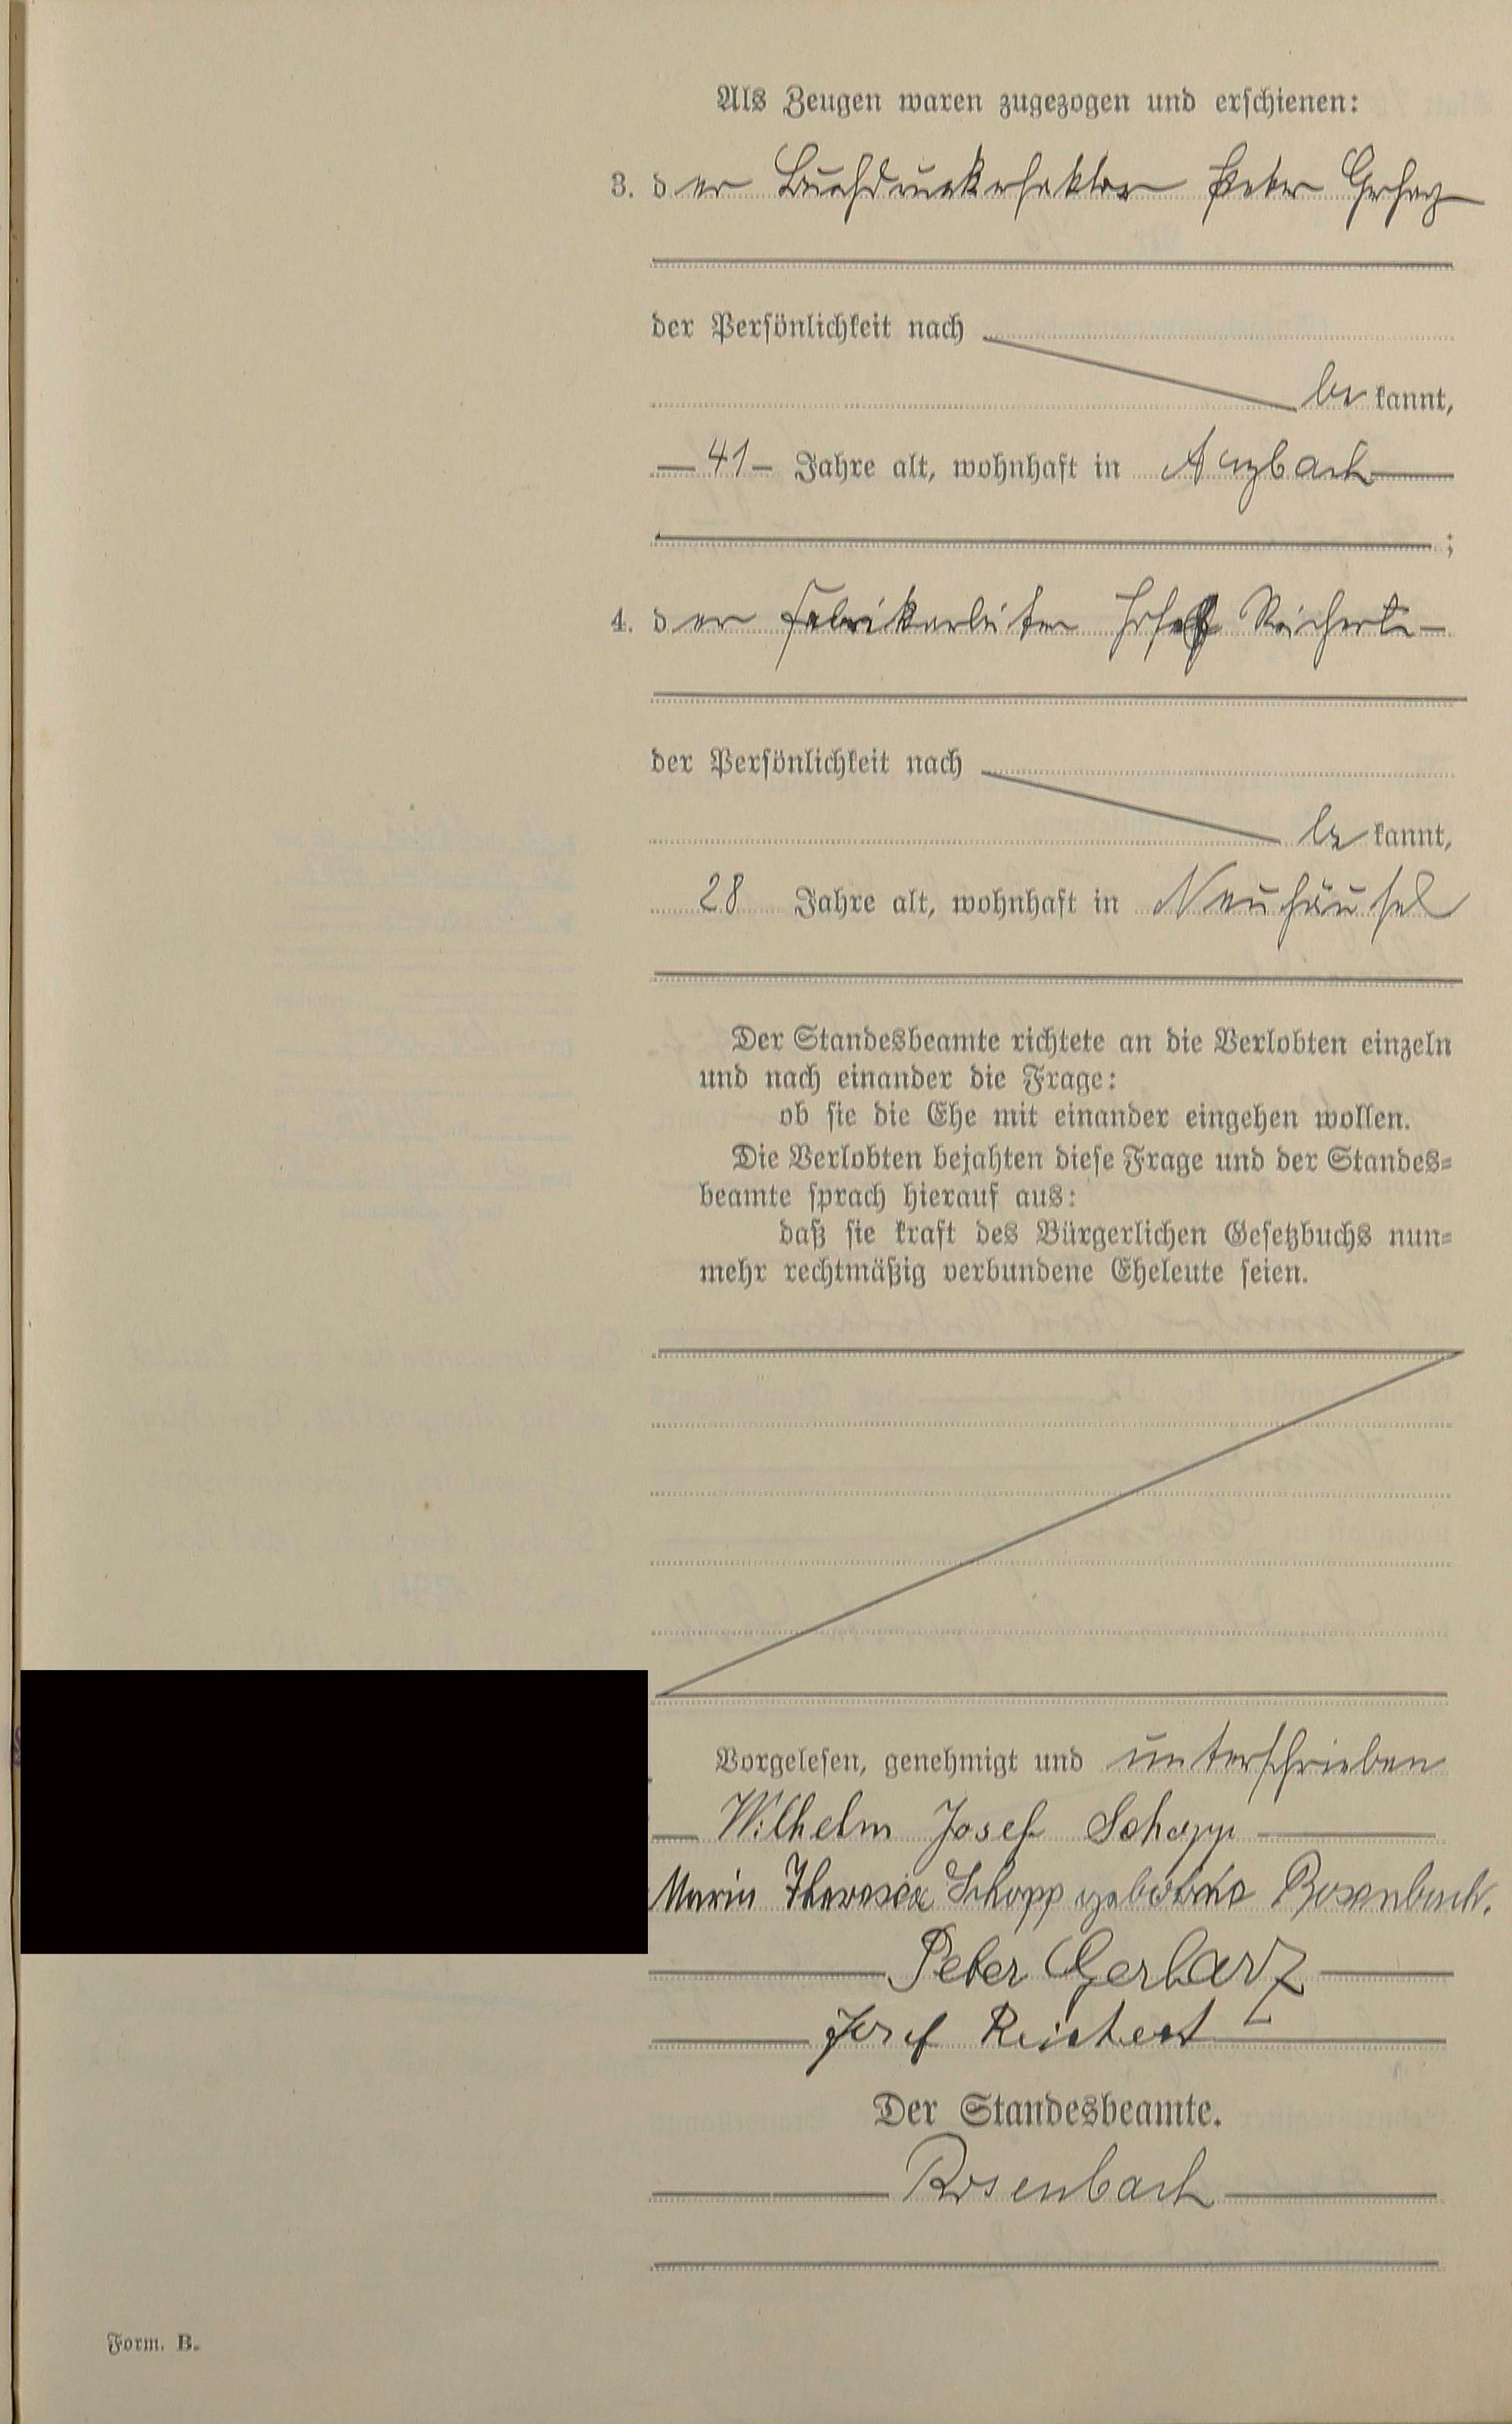 Als Zeugen waren zugezogen und erschienen:
3. der Buchdruckerfaktor Peter Gerharz
der Persönlichkeit nach
be kannt,
41 Jahre alt, wohnhaft in Arzbach
;
4. der Fabrikarbeiter Josef Reichert
der Persönlichkeit nach
be kannt,
28 Jahre alt, wohnhaft in Neuhäusel
Der Standesbeamte richtete an die Verlobten einzeln
und nach einander die Frage:
ob sie die Ehe mit einander eingehen wollen.
Die Verlobten bejahten diese Frage und der Standes=
beamte sprach hierauf aus:
daß sie kraft des Bürgerlichen Gesetzbuchs nun=
mehr rechtmäßig verbundene Eheleute seien.
Vorgelesen, genehmigt und unterschrieben
Wilhelm Josef Schopp
Maria Theresia Schopp geborene Rosenbach.
Peter Gerharz
Josef Reichert
Der Standesbeamte.
Rosenbach
Form. B.